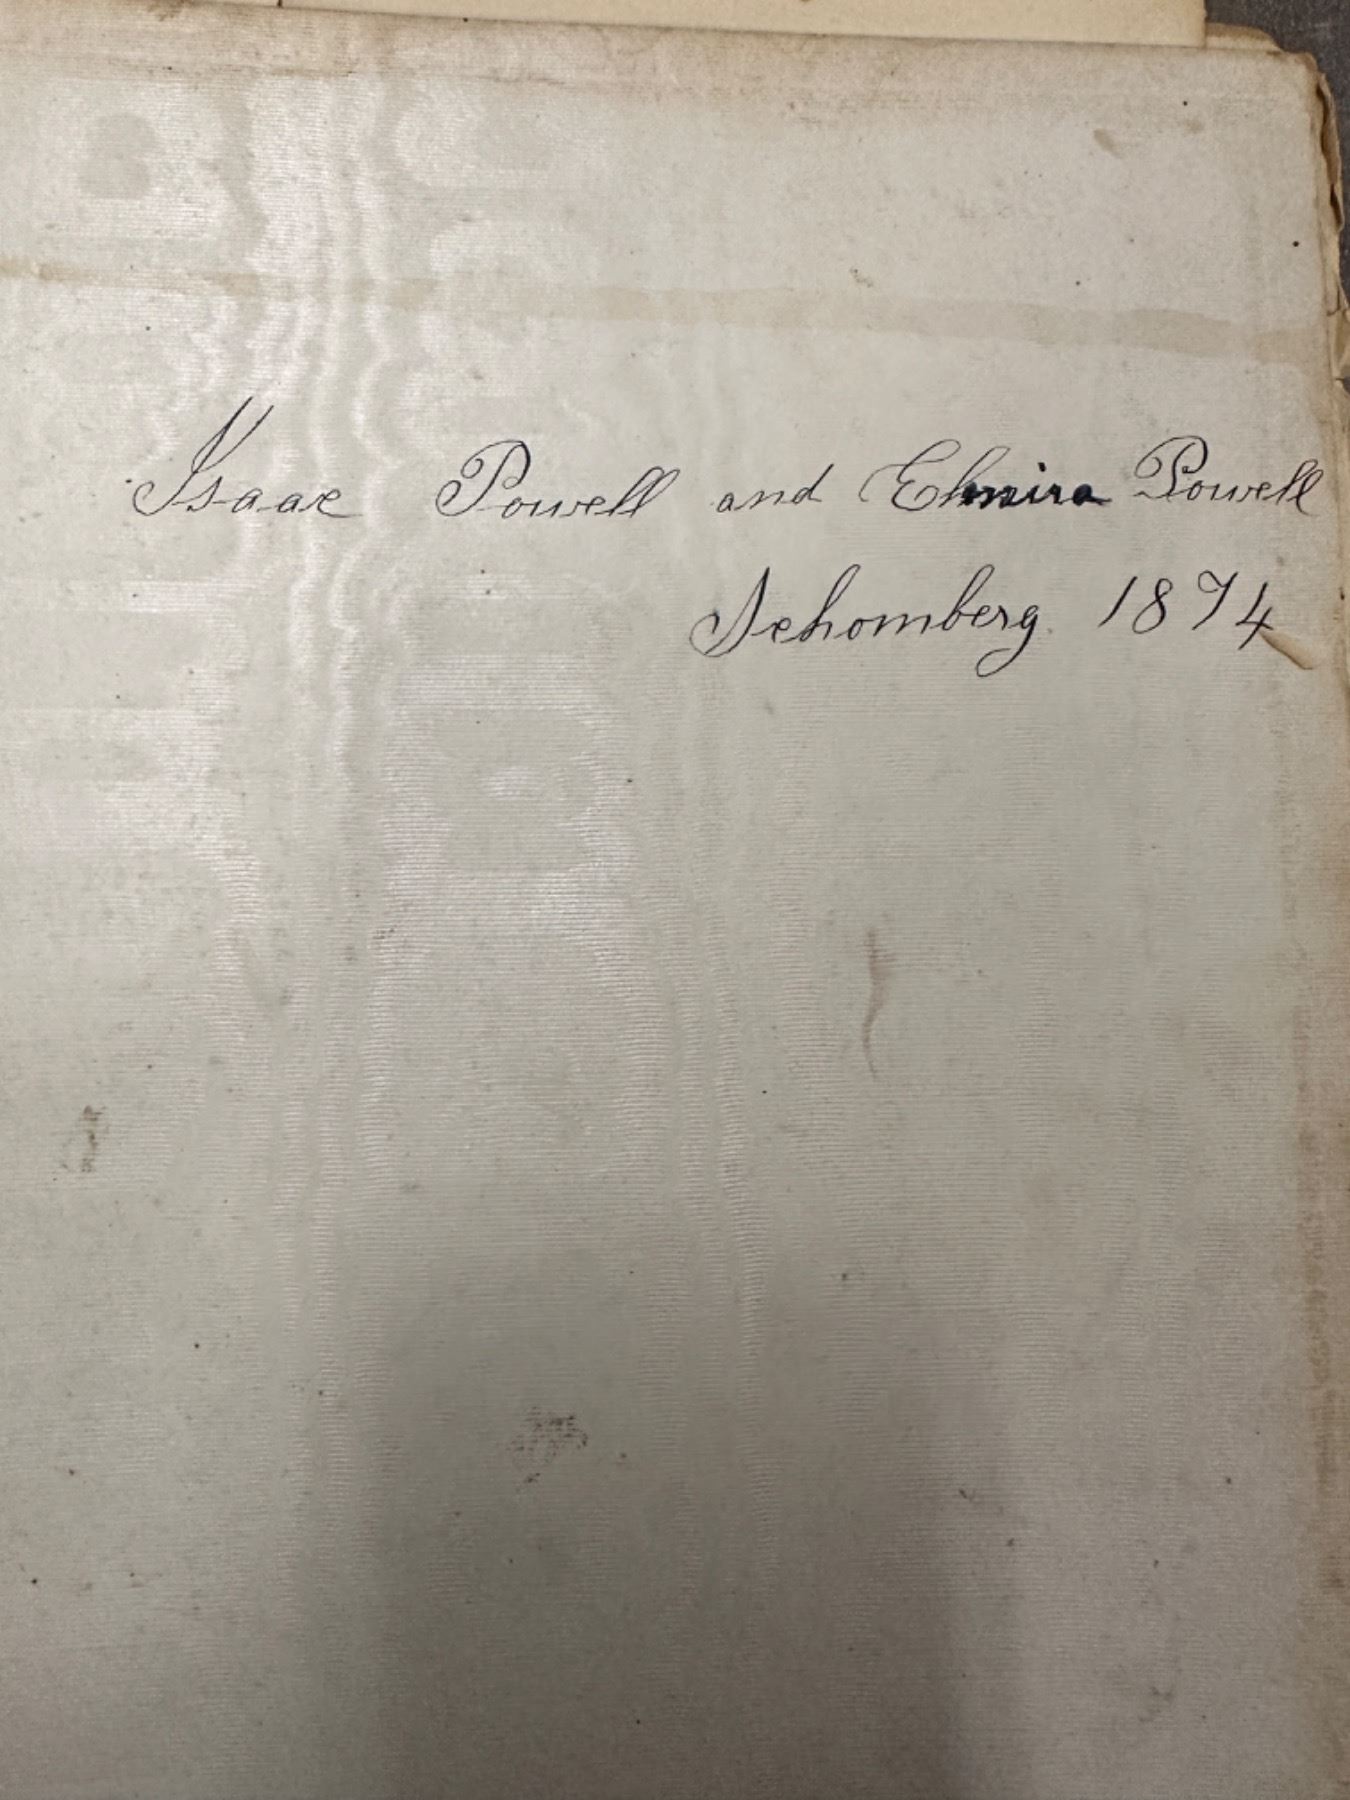 Isaac Powell and Elmira Powell
Schomberg. 1874